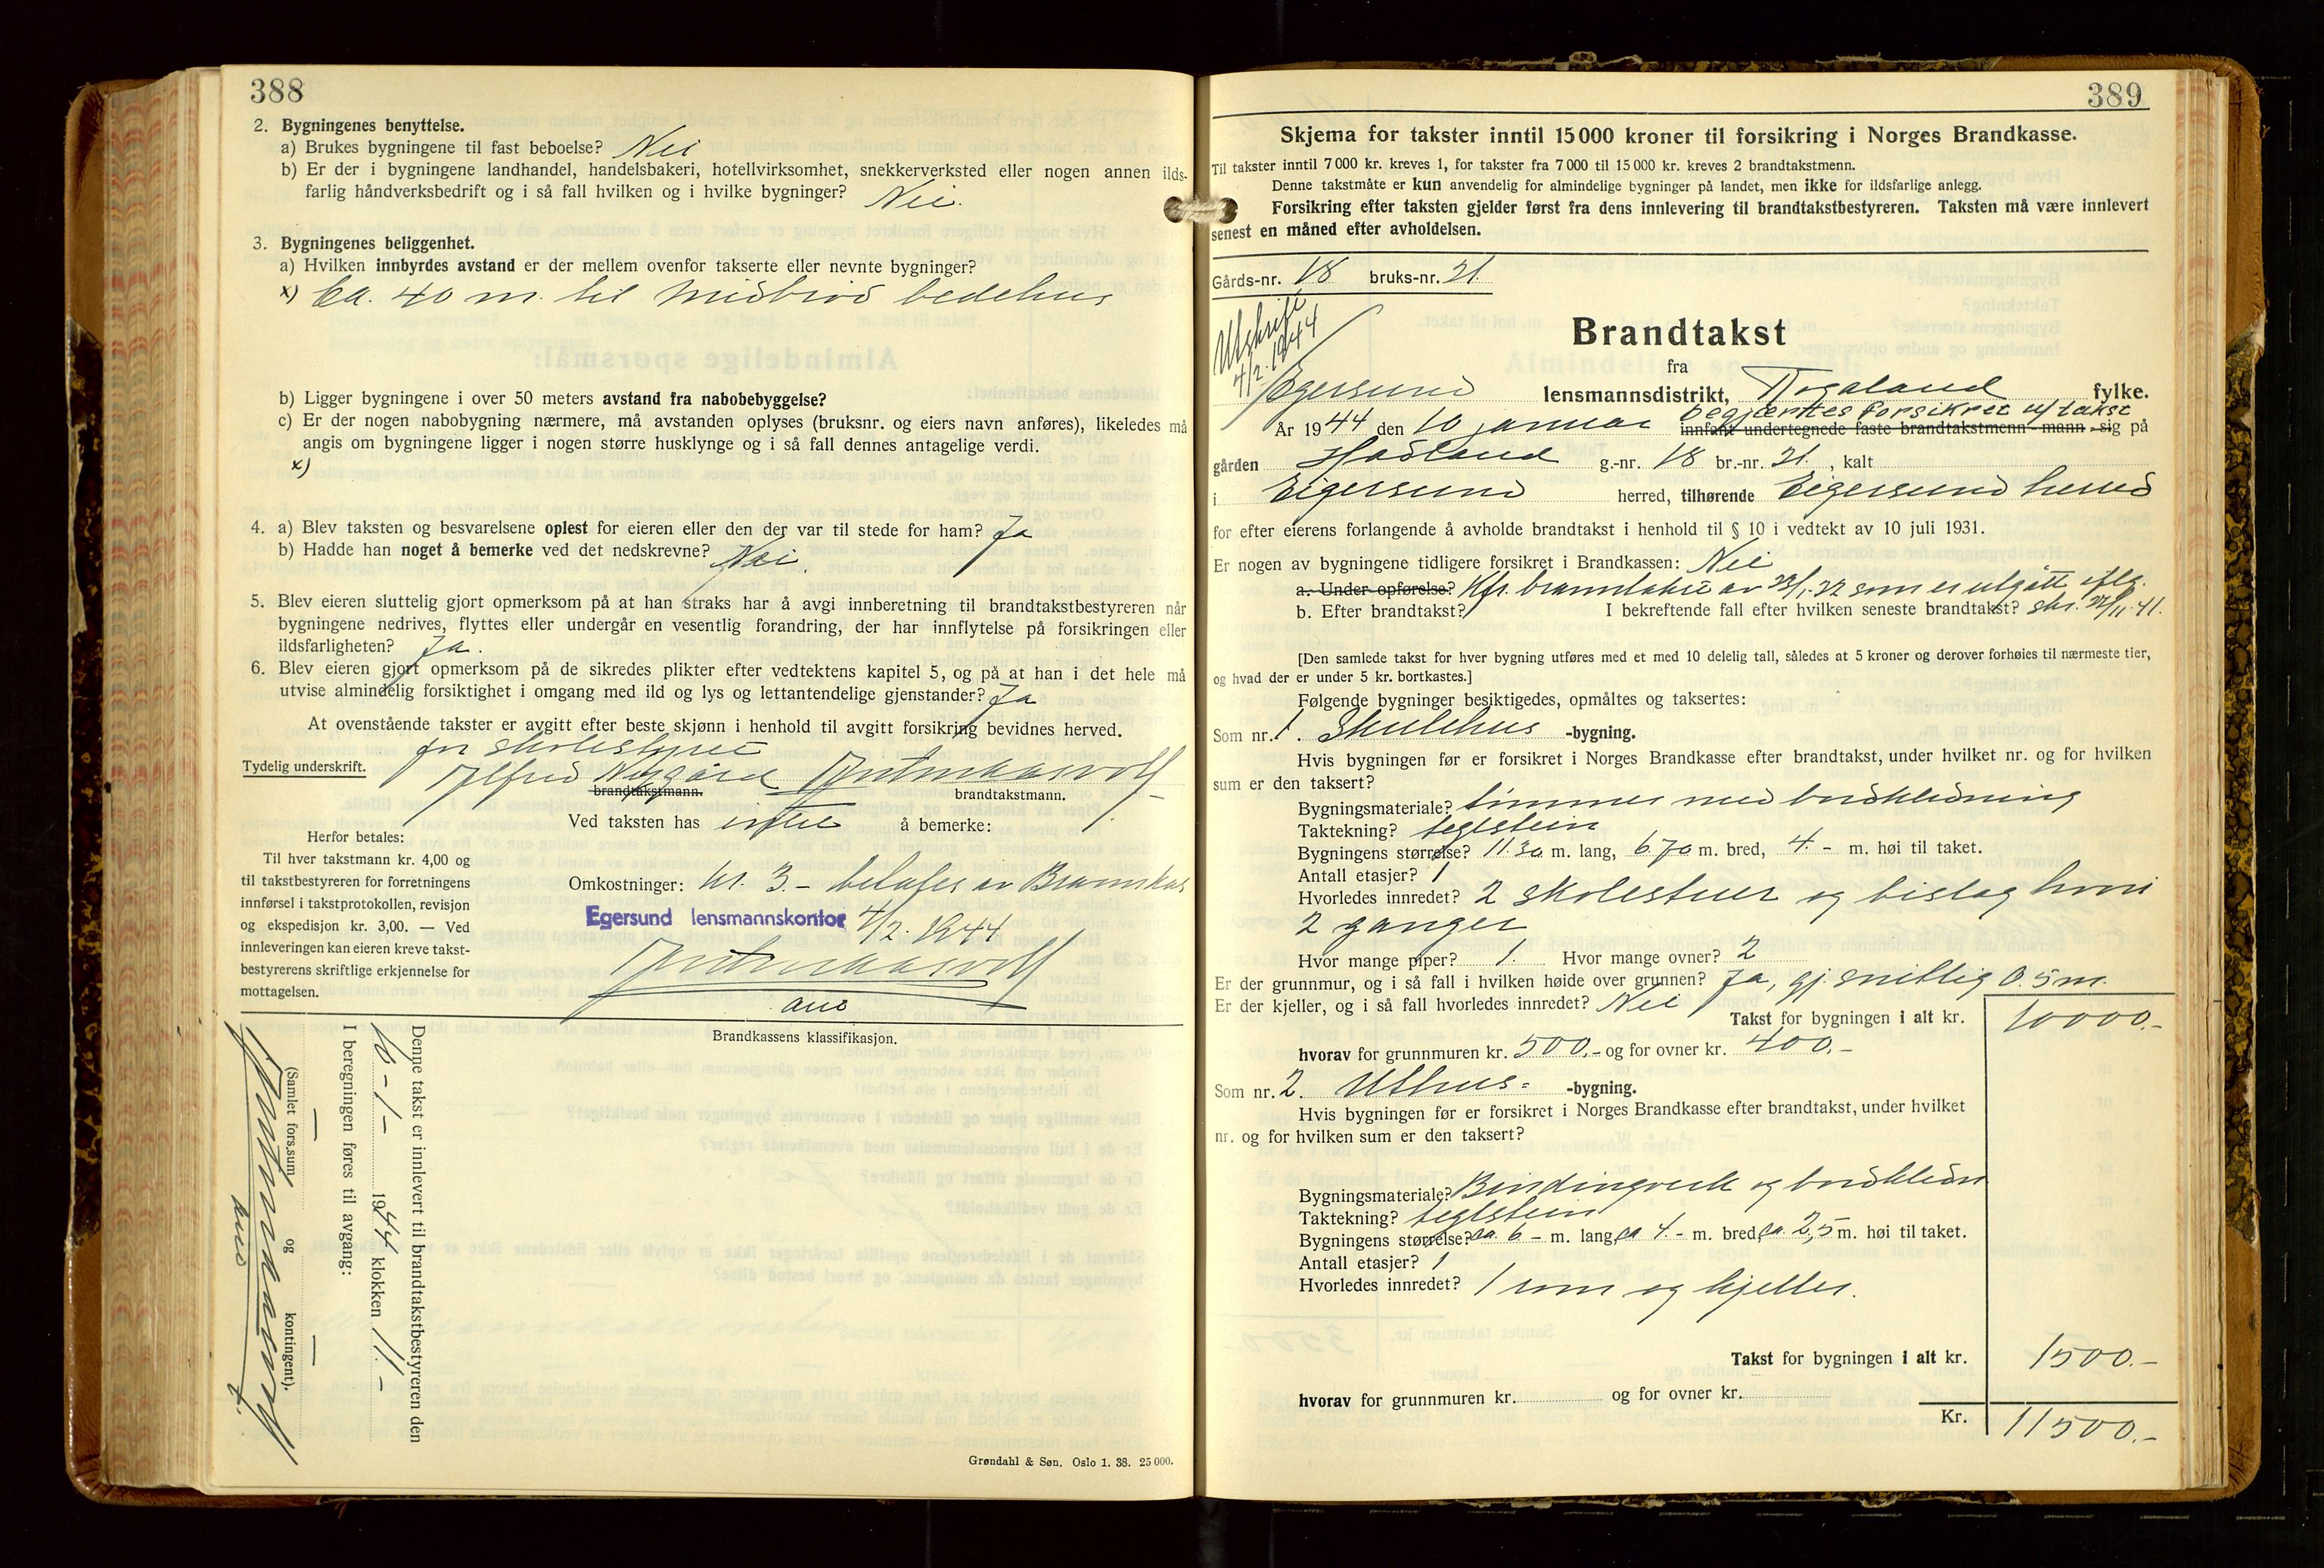 388
2. Bygningenes benyttelse.
a) Brukes bygningene til fast beboelse? Nei
b) Er der i bygningene landhandel, handelsbakeri, hotellvirksomhet, snekkerverksted eller nogen annen ilds-
farlig håndverksbedrift og i så fall hvilken og i hvilke bygninger? Nei.
3. Bygningenes beliggenhet.
a) Hvilken innbyrdes avstand er der mellem ovenfor takserte eller nevnte bygninger?
x) Ca. 40 m. til Midbrød bedehus
b) Ligger bygningene i over 50 meters avstand fra nabobebyggelse?
c) Er der nogen nabobygning nærmere, må avstanden oplyses (bruksnr. og eiers navn anføres), likeledes må
angis om bygningene ligger i nogen større husklynge og i så fall dennes antagelige verdi.
x)
4. a) Blev taksten og besvarelsene oplest for eieren eller den der var til stede for ham? Ja
b) Hadde han noget å bemerke ved det nedskrevne? Nei.
5. Blev eieren sluttelig gjort opmerksom på at han straks har å avgi innberetning til brandtakstbestyreren når
bygningene nedrives, flyttes eller undergår en vesentlig forandring, der har innflytelse på forsikringen eller
ildsfarligheten? Ja.
6. Blev eieren gjort opmerksom på de sikredes plikter efter vedtektens kapitel 5, og på at han i det hele må
utvise almindelig forsiktighet i omgang med ild og lys og lettantendelige gjenstander? Ja
At ovenstående takster er avgitt efter beste skjønn i henhold til avgitt forsikring bevidnes herved.
for skolestyret
Tydelig underskrift. Alfred Nygård
brandtakstmann. brandtakstmann.
Ved taksten has intet å bemerke:
Herfor betales:
Til hver takstmann kr. 4,00 og
til takstbestyreren for forretningens
innførsel i takstprotokollen, revisjon
og ekspedisjon kr. 3,00. — Ved
innleveringen kan eieren kreve takst-
bestyrerens skriftlige erkjennelse for
mottagelsen.
Omkostninger: kr. 3.- betales av Brannkas
Egersund lensmannskontor 4/2. 1944
Brandkassens klassifikasjon.
Denne takst er innlevert til brandtakstbestyreren den
10 - 1 - 1944 klokken 11.-
I beregningen føres til avgang:
— —
(Samlet fors.sum og kontingent).
Grøndahl & Søn. Oslo 1. 38. 25 000.
389
Skjema for takster inntil 15 000 kroner til forsikring i Norges Brandkasse.
Til takster inntil 7 000 kr. kreves 1, for takster fra 7 000 til 15 000 kr. kreves 2 brandtakstmenn.
Denne takstmåte er kun anvendelig for almindelige bygninger på landet, men ikke for ildsfarlige anlegg.
Forsikring efter taksten gjelder først fra dens innlevering til brandtakstbestyreren. Taksten må være innlevert
senest en måned efter avholdelsen.
Gårds-nr. 18 bruks-nr. 21.
Utskrift
4/2. 1944
Brandtakst
fra
Egersund lensmannsdistrikt, Rogaland fylke.
begjærtes forsikret v/ takst
År 1944 den 10 januar innfant undertegnede faste brandtakstmenn - mann - sig på
gården Hadland g.-nr. 18 br.-nr. 21. , kalt
i Eigersund herred, tilhørende Eigersund herred
for efter eierens forlangende å avholde brandtakst i henhold til § 10 i vedtekt av 10 juli 1931.
Er nogen av bygningene tidligere forsikret i Brandkassen: Nei
a. Under opførelse? Kfr. branntakst av 29/1.27 som er utgått iflg.
b. Efter brandtakst? I bekreftende fall efter hvilken seneste brandtakst? skr. 22/11.41.
[Den samlede takst for hver bygning utføres med et med 10 delelig tall, således at 5 kroner og derover forhøies til nærmeste tier,
og hvad der er under 5 kr. bortkastes.]
Følgende bygninger besiktigedes, opmåltes og taksertes:
Som nr. 1. Skulehus -bygning.
Hvis bygningen før er forsikret i Norges Brandkasse efter brandtakst, under hvilket nr. og for hvilken
sum er den taksert?
Bygningsmateriale? timmer med bordkledning
Taktekning? teglstein
Bygningens størrelse? 11.30 m. lang, 6.70 m. bred, 4.- m. høi til taket.
Antall etasjer? 1
Hvorledes innredet? 2 skolestuer og bislag hvori
2 ganger
Hvor mange piper? 1. Hvor mange ovner? 2
Er der grunnmur, og i så fall i hvilken høide over grunnen? Ja, gj.snitlig 0.5 m.
Er der kjeller, og i så fall hvorledes innredet? Nei
Takst for bygningen i alt kr. 10000.-
hvorav for grunnmuren kr. 500.- og for ovner kr. 400.-
Som nr. 2. Uthus- -bygning.
Hvis bygningen før er forsikret i Norges Brandkasse efter brandtakst, under hvilket
nr. og for hvilken sum er den taksert?
Bygningsmateriale? Bindingverk og bordkledn
Taktekning? teglstein
Bygningens størrelse? ca. 6 - m. lang, ca 4.- m. bred, ca. 2,5 m. høi til taket.
Antall etasjer? 1
Hvorledes innredet? 1 rom og kjeller.
Takst for bygningen i alt kr. 1500.-
hvorav for grunnmuren kr. og for ovner kr.
Kr. 11500.-